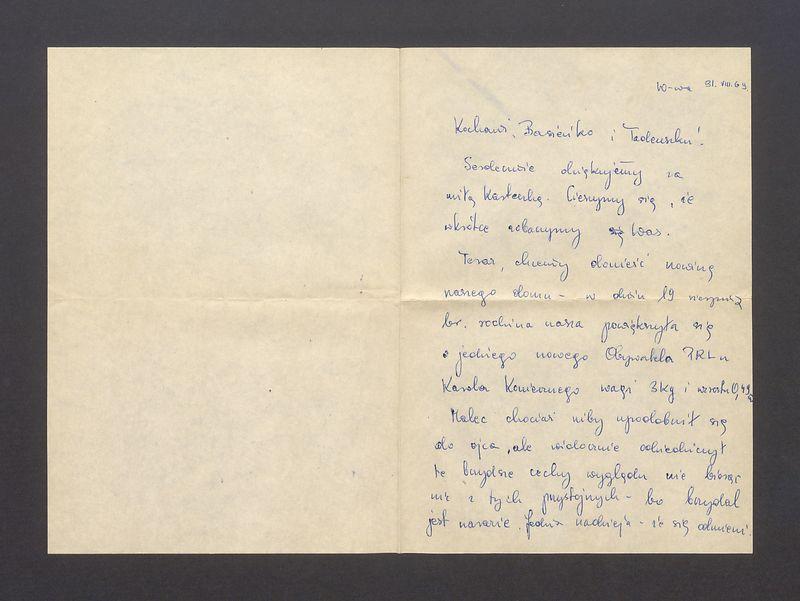 W-wa 31.VIII.69.
Kochani, Basieńko i Tadeuszku!
Serdecznie dziękujemy za
miłą Karteczkę. Cieszymy się, że
wkrótce zobaczymy Was.
Teraz, chcemy donieść nowinę
naszego domu - w dniu 19 sierpnia
br. rodzina nasza powiększyła się
o jednego nowego Obywatela PRL-u
Karola Koniecznego wagi 3kg i wzrostu 0,49
Malec chociaż niby upodobnił się
do ojca, ale widocznie odziedziczył
te brzydsze cechy wyglądu nie biorąc
nic z tych przystojnych - bo brzydal
jest narazie. Jedna nadzieja - że się odmieni.